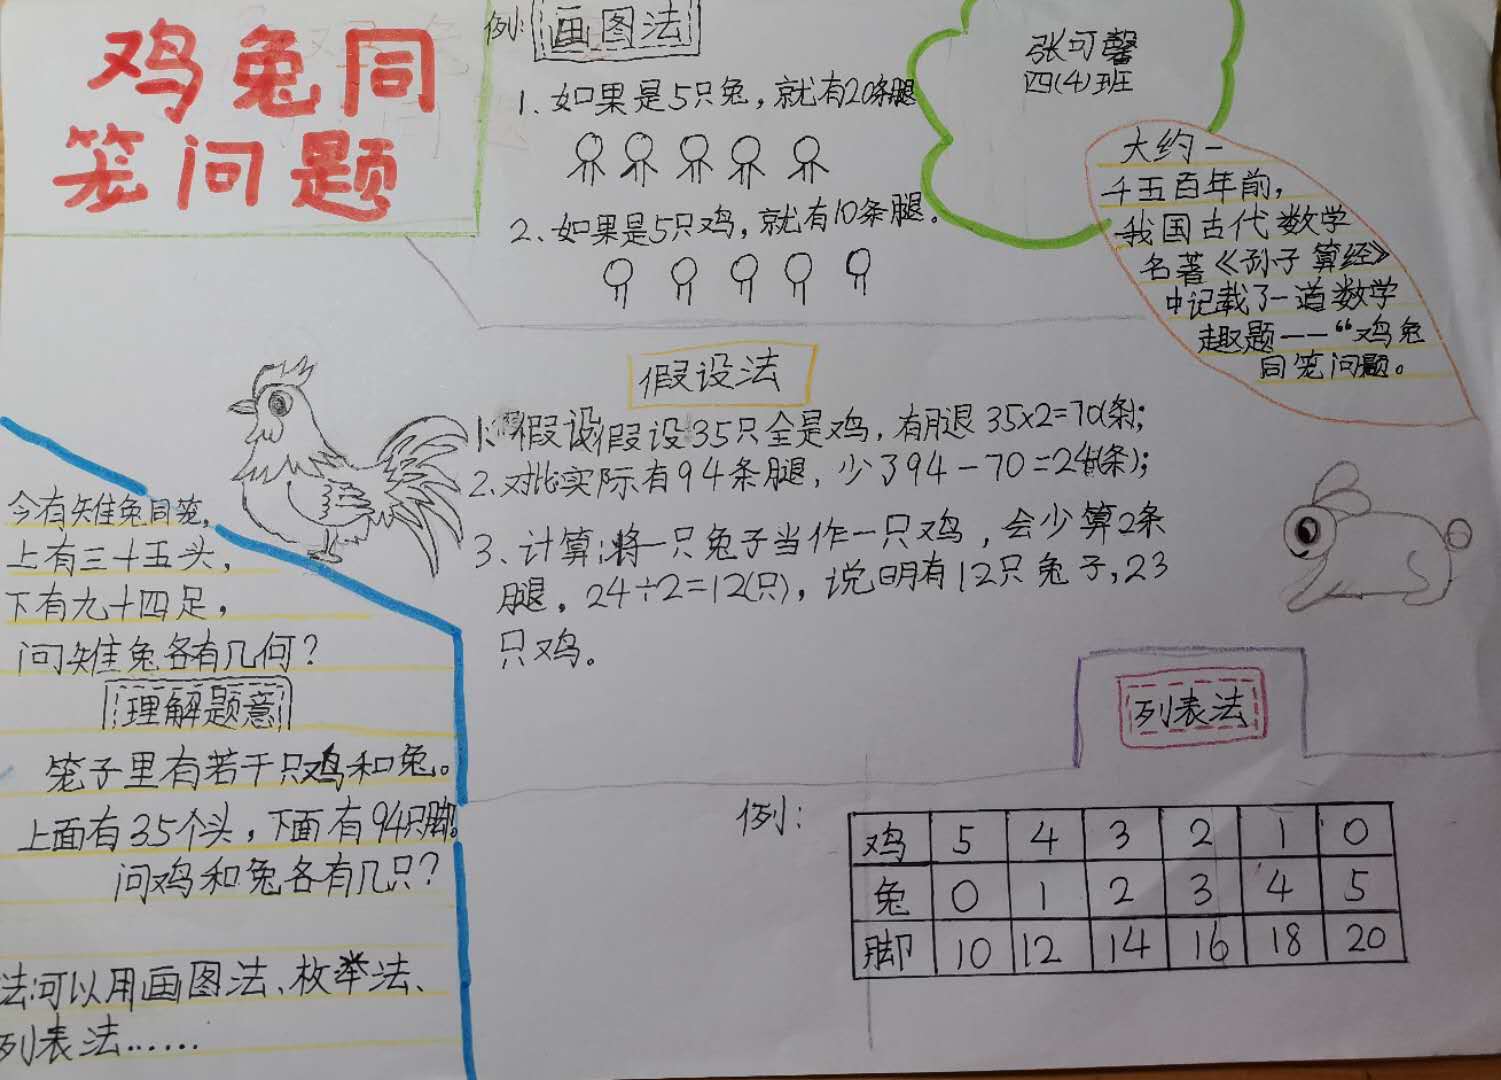 鸡兔同
笼问题
例:画图法
1、如果是5只兔，就有20条腿
2、如果是5只鸡，就有10条腿。
张可馨
四(4)班
大约一
千五百年前，
我国古代数学
名著《孙子算经》
中记载了一道数学
趣题——“鸡兔
同笼问题。
假设法
1、假设假设35只全是鸡，有腿35x2=70(条);
2、对比实际有94条腿，少了94-70=24(条);
3、计算:将一只兔子当作一只鸡，会少算2条
腿，24÷2=12(只)，说明有12只兔子,23
只鸡。
今有雉兔同笼，
上有三十五头，
下有九十四足，
问雉兔各有几何?
理解题意
笼子里有若干只鸡和兔。
上面有35个头，下面有94只脚。
问鸡和兔各有几只?
法:可以用画图法、枚举法、
列表法......
列表法
例:
鸡 5 4 3 2 1 0
兔 0 1 2 3 4 5
脚 10 12 14 16 18 20